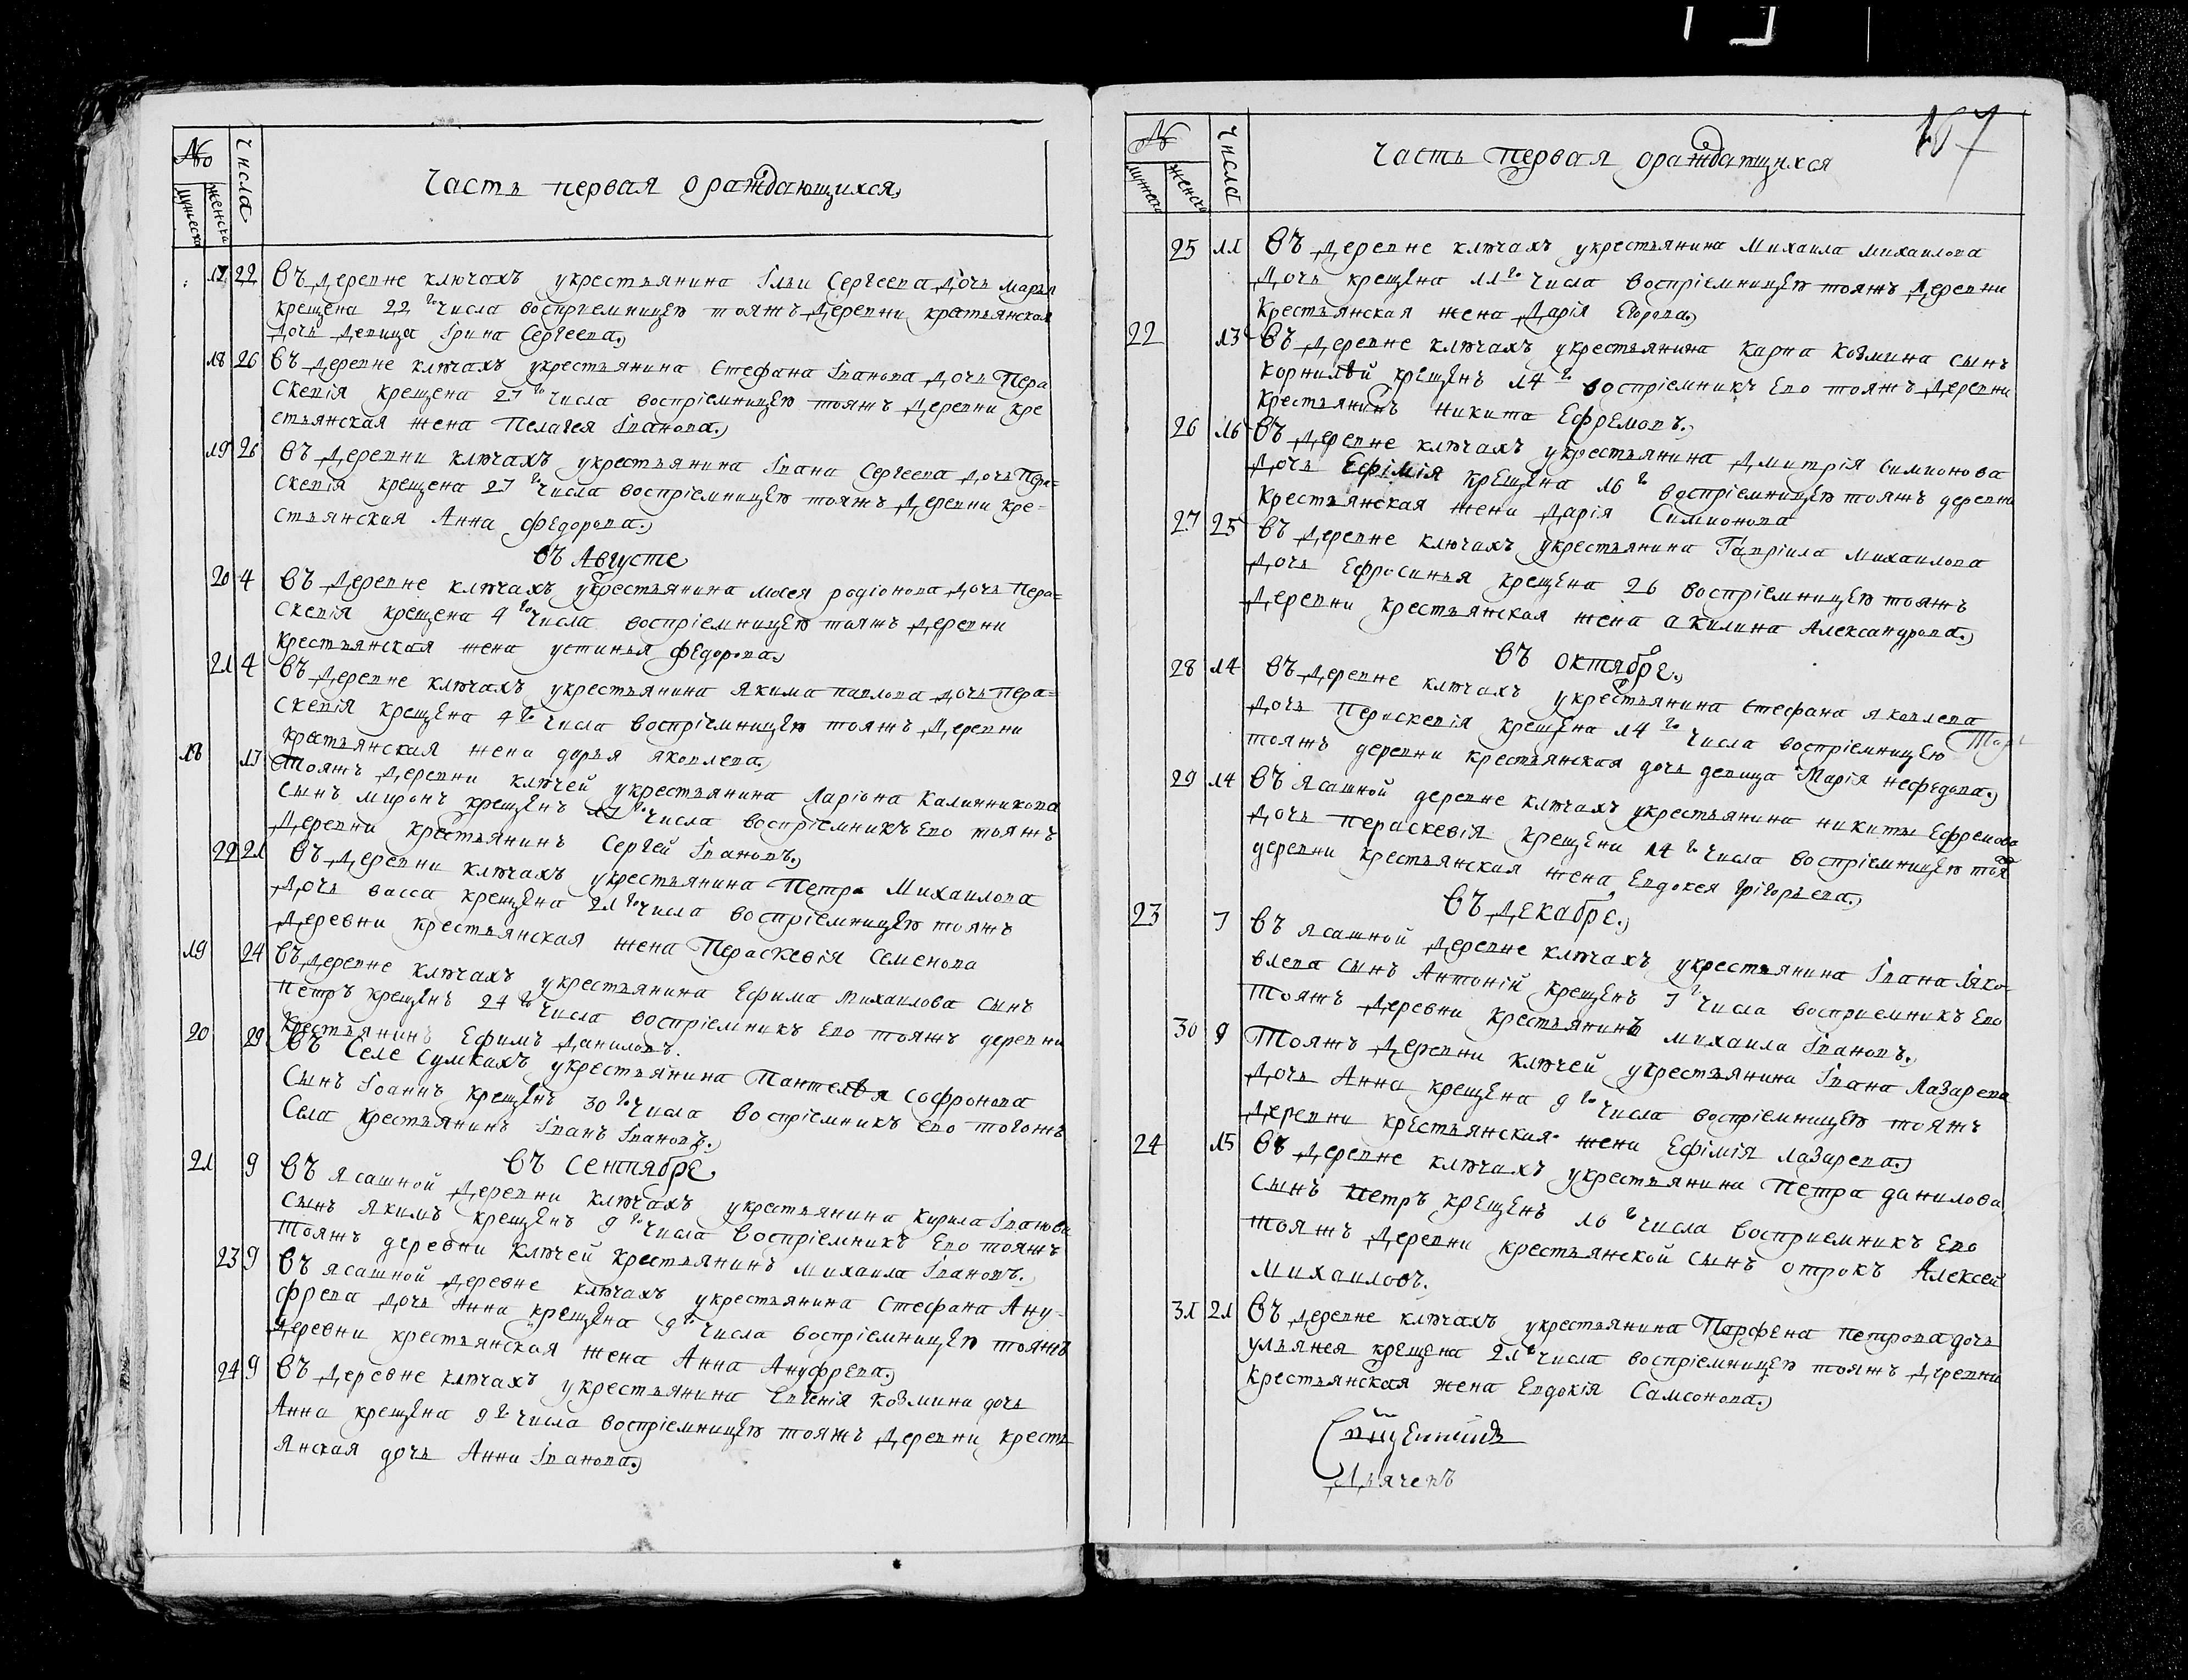 № Числа Часть первая ораждающихся
Мужеска Женска
17 22 Въ деревне ключахъ укрестьянина Ільи Сергеева дочь Марья
крещена 22 го числа восприемницею тояжъ деревни крестьянская
дочь девица Ірина Сергеева.
18 26 Въ деревне ключахъ укрестьянина Стефана Іванова дочь Пера
скевія крещена 27 го числа воспріемницею тояжъ деревни кре
стьянская жена Пелагея Іванова.
19 26 Въ деревни ключахъ укрестьянина Івана Сергеева дочь Пера=
скевія крещена 27 го числа воспріемницею тояжъ деревни кре=
стьянская Анна Федорова.
Въ Августе
20 4 Въ деревне ключахъ укрестьянина Мосея родіонова дочь Пера=
скевія крещена 4 го числа воспріемницею тояжъ деревни
крестьянская жена устинья Федорова
21 4 Въ деревне ключахъ укрестьянина Якима павлова дочь Пера=
скевія крещена 4 го числа воспріемницею тояжъ деревни
крестьянская жена дарья яковлева.
18 17 Тояжъ деревни ключей укрестьянина Ларіона Калинникова
сынъ миронъ крещенъ 17 го числа воспріемникъ Ево тояжъ
деревни крестьянинъ Сергей Івановъ.
22 21 Въ деревни ключахъ укрестьянина Петра Михаилова
дочь васса крещена 21 го числа воспріемницею тояжъ
деревни крестьянская жена Пераскевія Семенова
19 24 Въ деревне ключахъ укрестьянина Ефима Михаилова сынъ
Петръ крещенъ 24 го числа воспріемникъ Ево тояжъ деревни
крестьянинъ Ефимъ Даниловъ.
20 29 Въ Селе Сумкахъ укрестьянина Пантелея Софронова
Сынъ Іоаннъ крещенъ 30 го числа воспріемникъ Ево тогожъ
Села крестьянинъ Іванъ Івановъ.
Въ Сентябре.
21 9 Въ ясашной деревни ключахъ укрестьянина Кирила Іванова
сынъ якимъ крещенъ 9 го числа воспріемникъ Ево тояжъ
тояжъ деревни ключей крестьянинъ михаила Івановъ.
23 9 Въ ясашной деревне ключахъ укрестьянина Стефана Ану=
фрева дочь Анна крещена 9 го числа воспріемницею тояжъ
деревни крестьянская жена Анна Ануфрева.
24 9 Въ деревне ключахъ укрестьянина Евгенія Козмина дочь
Анна крещена 9 го числа воспріемницею тояжъ деревни кресть
янская дочь Анна Іванова.
167
№ Числа Часть первая ораждающихся
Мужеска Женска
25 11 Въ деревне ключахъ укрестьянина Михаила Михаилова
дочь крещена 11 го числа воспріемницею тояжъ деревни
Крестьянская жена Дарія Егорова.
22 13 Въ деревне ключахъ укрестьянина Карпа Козмина сынъ
Корнилей крещенъ 14 го воспріемникъ Ево тояжъ деревни
крестьянинъ Никита Ефремовъ.
26 16 Въ деревне ключахъ укрестьянина Дмитрія Симионова
дочь Ефімія крещена 16 го воспріемницею тояжъ деревни
крестьянская жена Дарія Симионова
27 25 Въ деревне ключахъ укрестьянина Гавріила Михаилова
дочь Ефросинья крещена 26 воспріемницею тояжъ
деревни крестьянская жена акилина Александрова.
Въ октябре.
28 14 Въ деревне ключахъ укрестьянина Стефана яковлева
дочь Пераскевія крещена 14 го числа воспріемницею
тояжъ деревни крестьянская дочь девица Марія нефедова.
29 14 Въ ясашной деревне ключахъ укрестьянина никиты Ефремова
дочь пераскевія крещена 14 го числа воспріемницею тоя
деревни крестьянская жена Евдокея Грігорьева.
Въ Декабре.
23 7 Въ ясашной деревне ключахъ укрестьянина Івана Яко-
влева сынъ Антоній крещенъ 7 го числа восприемникъ Ево
тояжъ деревни крестьянинъ михаила Івановъ.
30 9 Тояжъ деревни ключей укрестьянина Івана Лазарева
дочь Анна крещена 9 го числа воспріемницею тояжъ
деревни крестьянская жена Ефімія лазарева.
24 15 Въ деревне ключахъ укрестьянина Петра данилова
сынъ Петръ крещенъ 16 го числа восприемникъ Ево
тояжъ деревни крестьянской сынъ отрокъ Алексей
михаиловъ.
31 21 Въ деревне ключахъ укрестьянина Парфена петрова дочь
ульянея крещена 21 го числа воспріемницею тояжъ деревни
крестьянская жена Евдокія Самсонова.